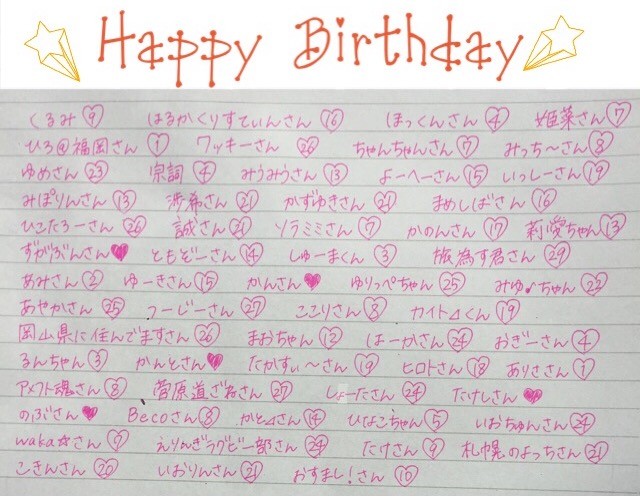 Happy Birthday
くるみ⑨ はるかくりすてぃんさん⑯ ほっくんさん④ 姫菜さん⑦
ひろ@福岡さん① ワッキーさん㉖ ちゃんちゃんさん⑦ みっち〜さん⑧
ゆめさん㉓ 宗詞④ みうみうさん⑬ よーへーさん⑮ いっしーさん⑲
みぽりんさん⑬ 渉希さん㉑ かずゆきさん㉑ まめしばさん⑯
ひこたろーさん㉖ 誠さん㉑ ソラミミさん⑦ かのんさん⑰ 莉愛ちゃん⑬
ずがぶんさん♥ ともぞーさん⑭ しゅーまくん③ 旅為す君さん㉙
あみさん② ゆーきさん⑮ かんさん♥ ゆりっぺちゃん㉕ みゆ♪ちゃん㉒
あやかさん㉕ つーじーさん㉗ ここりさん⑧ カイト⊿くん⑲
岡山県に住んでますさん㉖ まおちゃん⑫ はーかさん㉔ おぎーさん④
るんちゃん③ かんとさん♥ たかすぃ〜さん⑲ ヒロトさん⑱ ありささん①
アメフト魂さん⑧ 菅原道ざねさん㉗ しょーたさん㉔ たけしさん♥
のぶさん♥ Becoさん⑧ かと⊿さん⑭ ひなこちゃん⑤ いおちゅんさん㉔
waka☆さん⑦ えりんぎラグビー部さん㉔ たけさん⑨ 札幌のよっちさん㉑
こきんさん⑳ いおりんさん㉑ おすまし!さん⑩